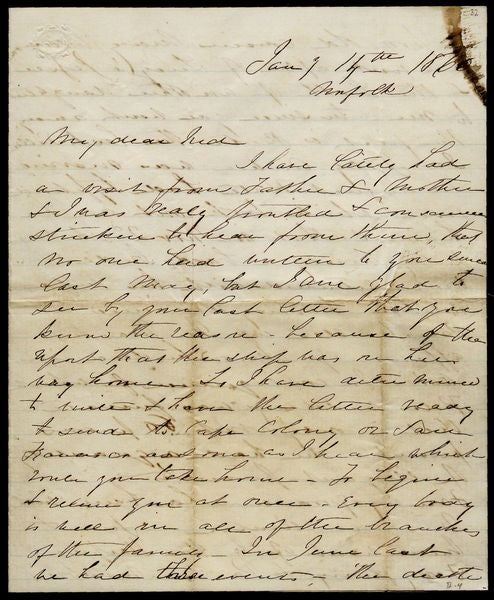 Jany 14th 18
Norfolk
My dear Ned
I have lately had
a visit from Father & Mother
& I was really troubled & conscience
stricken to hear from them, that
no one had written to you since
last May, but I am glad to
see by your last letter that you
know the reason - because of the
report that the ship was on her
way home. So I have determined
to write & have the letter ready
to send to Cape Colony or San
Francisco as soon as I hear which
route you take home - To begin
& relieve you at once. Every body
is well in all of the branches
of the family - In June last
we had three events - The death
32